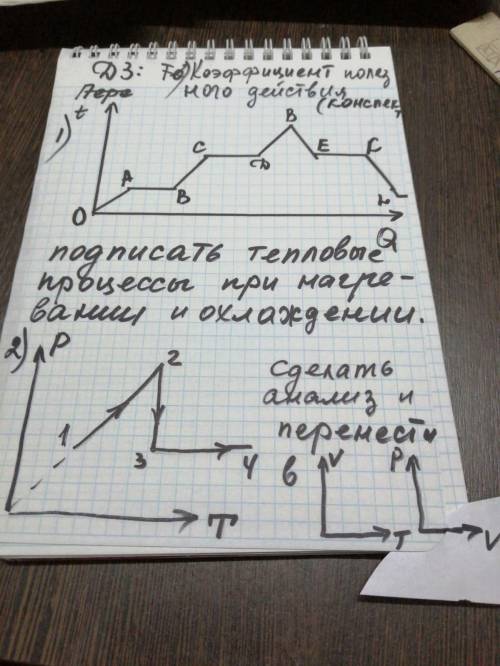 ДЗ: Коэффициент полез
ного действия
(конспект
t
1)
A
B
C
D
B
E
F
0
Q
подписать тепловые
процессы при нагре-
вании и охлаждении.
2)
P
2
1
3
4
T
сделать
анализ и
перенести
в
V
T
P
V